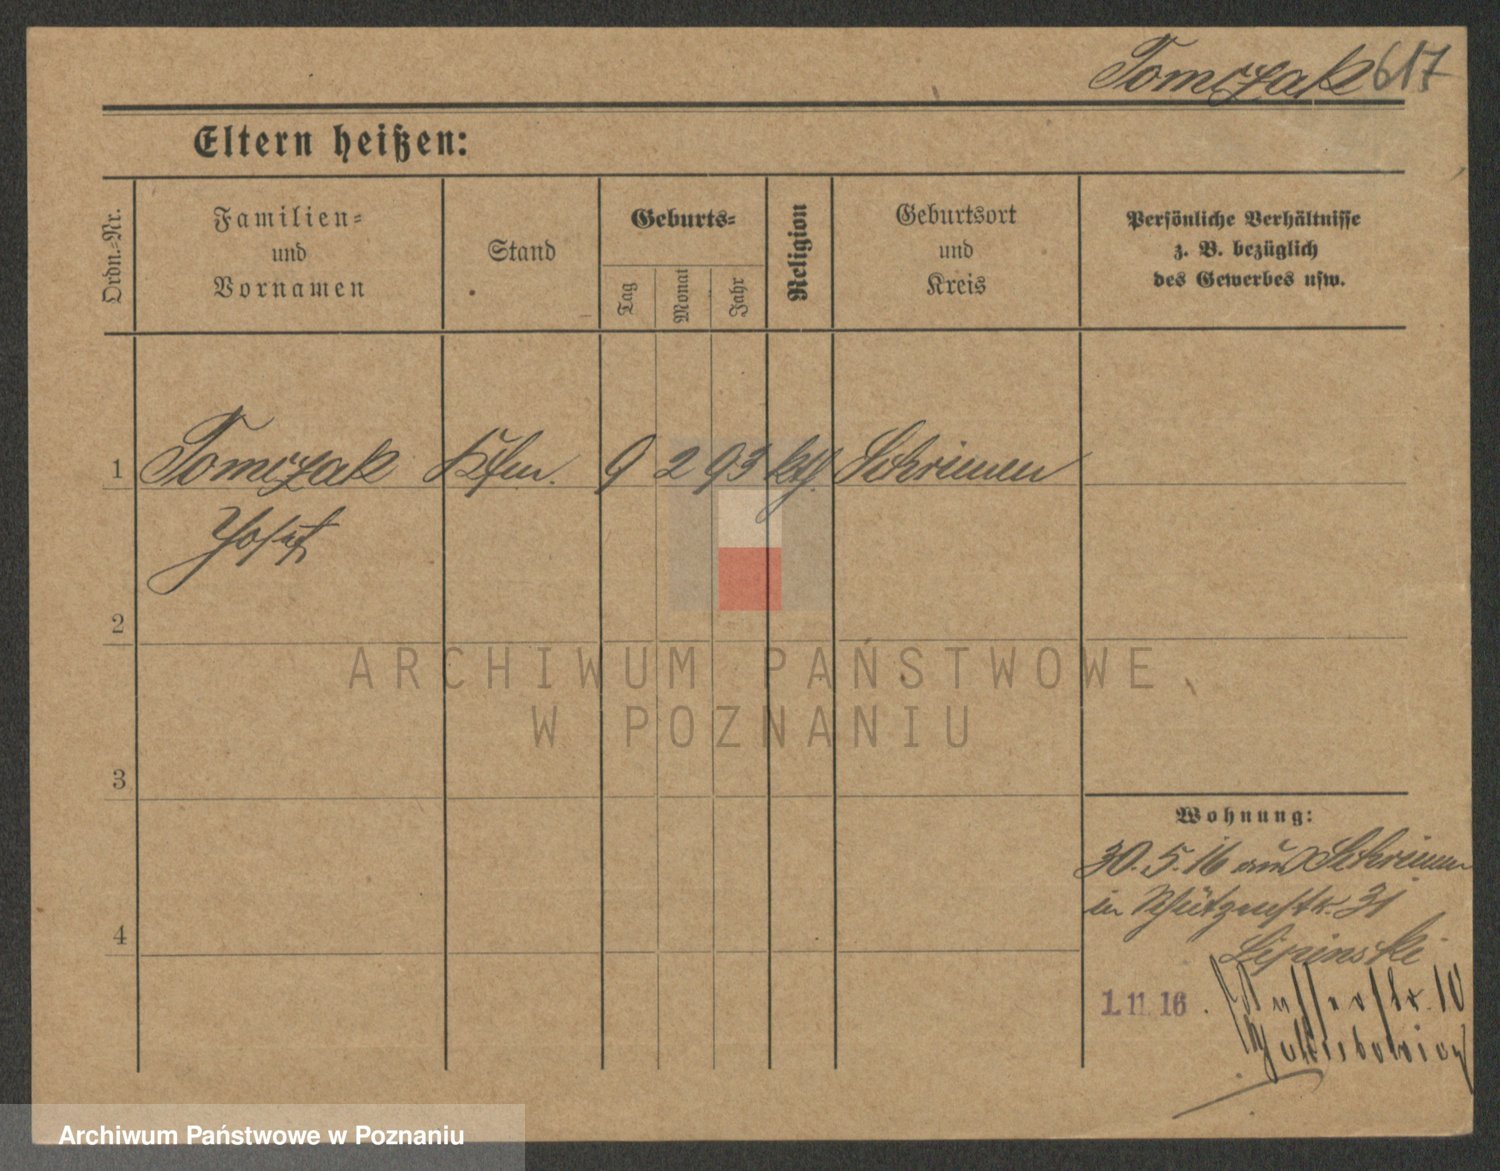 Tomczak 617
Eltern heißen:
Ordn.-Nr.
Familien-
und
Vornamen
Stand
Geburts-
Tag
Monat
Jahr
Religion
Geburtsort
und
Kreis
Persönliche Verhältnisse
z. B. bezüglich
des Gewerbes usw.
1 Tomczak Kfm. 9 2 93 kth. Schrimm
Josef
2
ARCHIWUM PAŃSTWOWE
W POZNANIU
3
Wohnung:
30.5.16 aus Schrimm
in Schützenstr. 31
4
Lipinski
1.11.16. 10
Archiwum Państwowe w Poznaniu